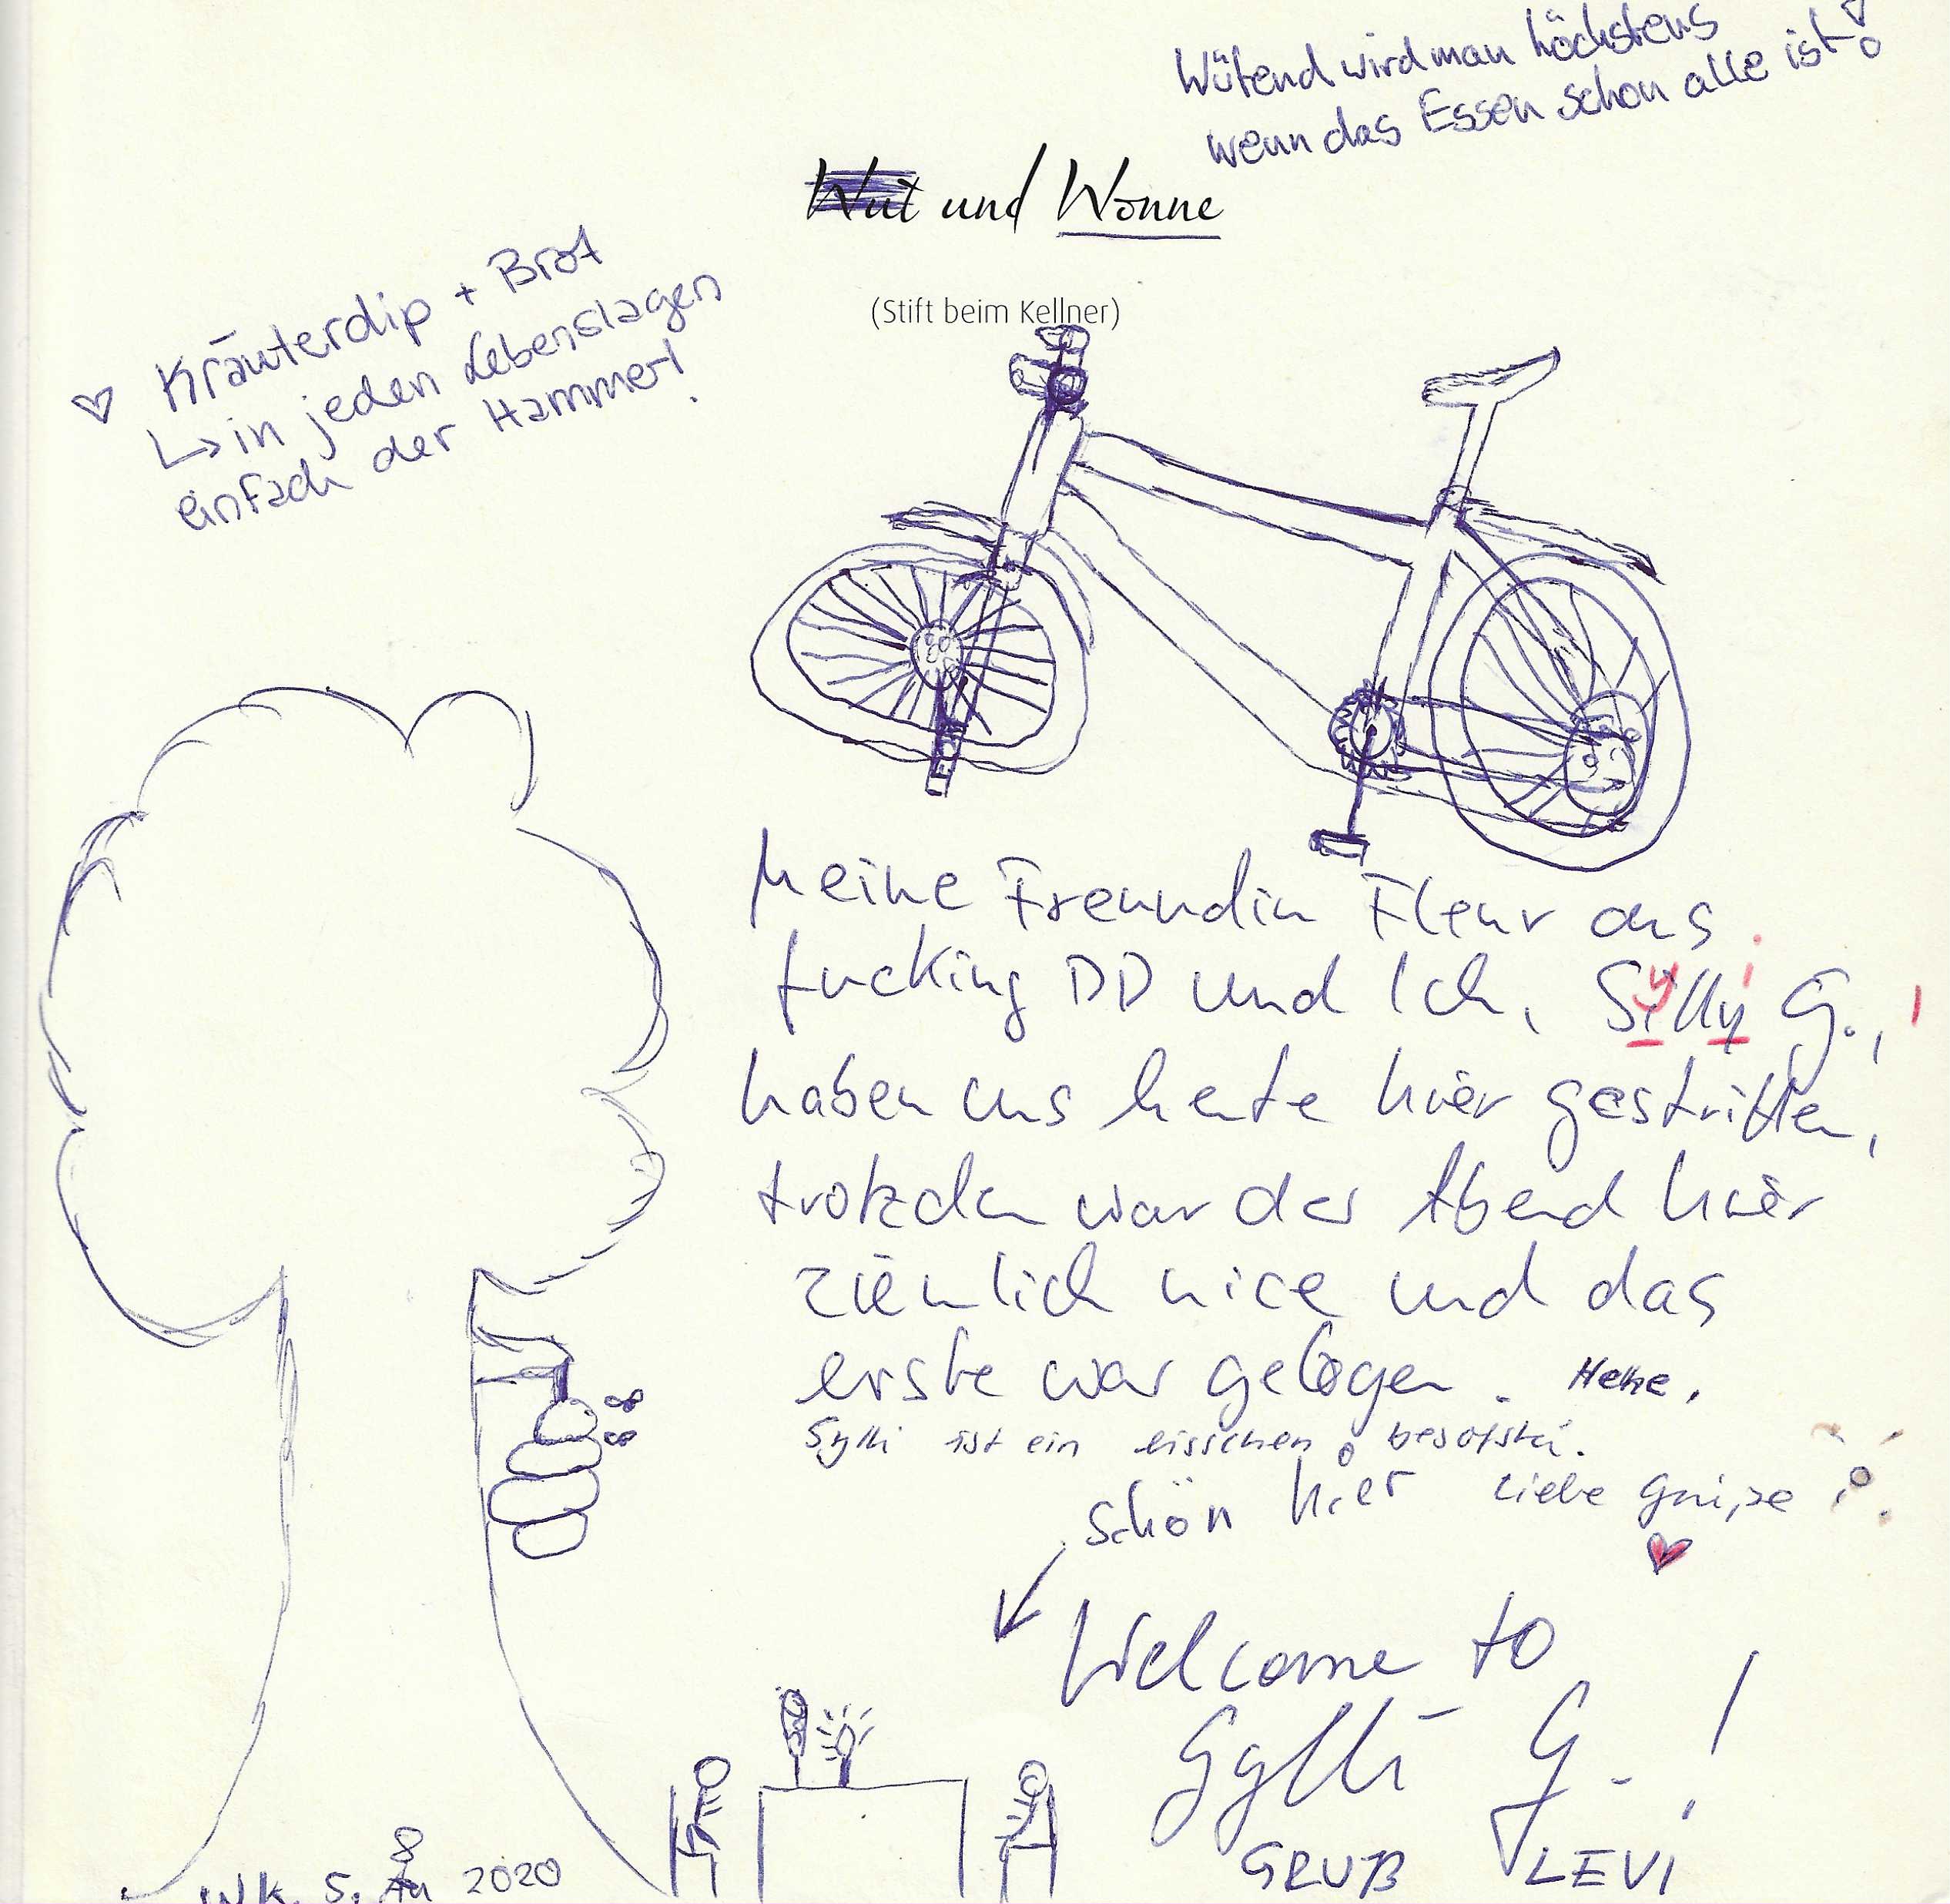 Wütend wird man höchstens
wenn das Essen schon alle ist!
Wut und Wonne
(Stift beim Kellner)
Kräuterdip + Brot
↳ in jeden Lebenslagen
einfach der Hammer!
Meine Freundin Fleur aus
fucking DD und Ich, Silly G.,
y i
haben uns heute hier gestritten,
trotzdem war der Abend hier
ziemlich nice und das
erste war gelogen. Hehe.
Sylli ist ein bisschen
schön hier Liebe
Welcome to
Sylli G.!
GRUß LEVI
5. 2020